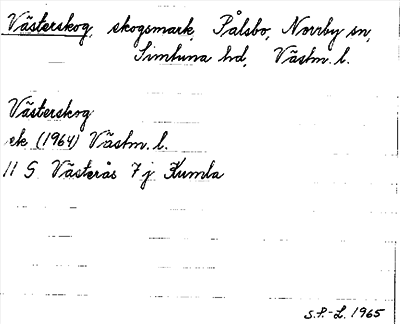 Västerskog, skogsmark, Pålsbo, Norrby sn,
Simtuna hd, Västm. l.
Västerskog
ek (1964) Västm. l.
11 G Västerås 7 j Kumla
S.P.-L. 1965